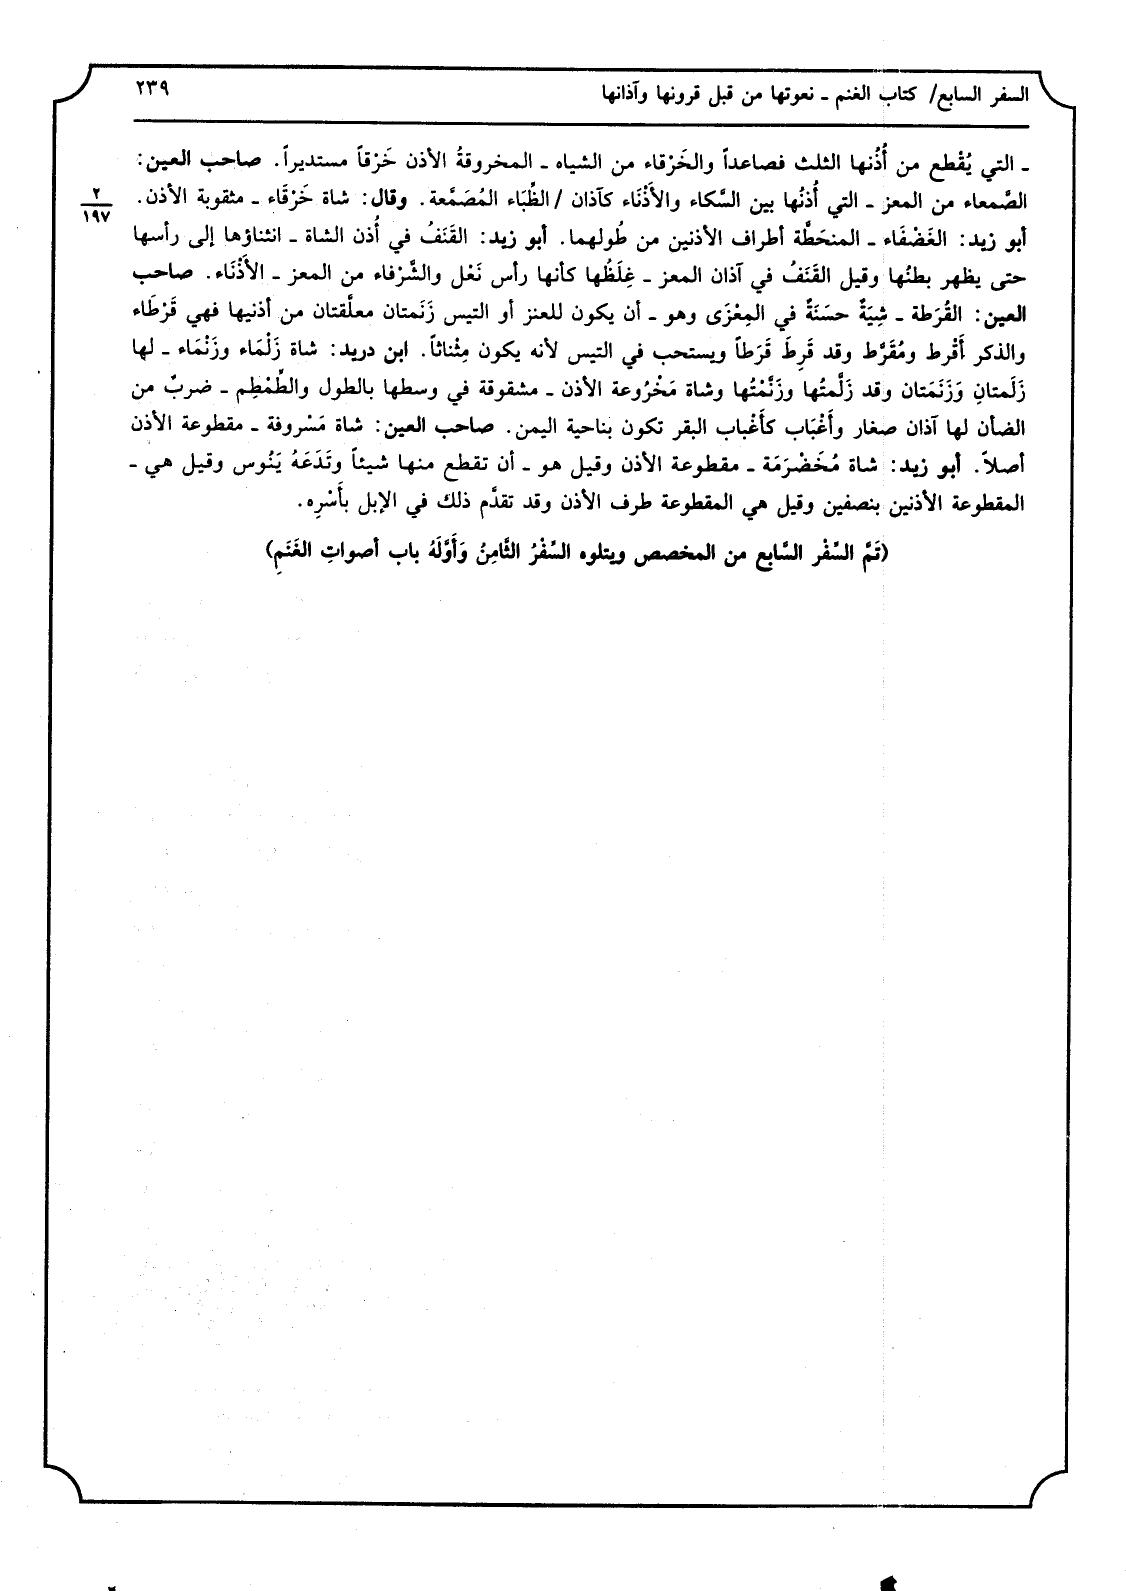 السفر السابع/ كتاب الغنم ـ نعوتها من قبل قرونها وآذانها ٢٣٩
ـ التي يُقْطع من أُذُنها الثلث فصاعداً والخَرْقاء من الشياه ـ المخروقةُ الأذن خَرْقاً مستديراً. صاحب العين:
الصَّمعاء من المعز ـ التي أُذنُها بين السَّكاء والأَذْنَاء كآذان /الظِّبَاء المُصَمَّعة. وقال: شاة خَرْقَاء ـ مثقوبة الأذن.
٢
١٩٧
أبو زيد: الغَضْفَاء ـ المنحَطَّة أطراف الأذنين من طُولهما. أبو زيد: القَنَفُ في أُذن الشاة ـ انثناؤها إلى رأسها
حتى يظهر بطنُها وقيل القَنَفُ في آذان المعز ـ غِلَظُها كأنها رأس نَعْل والشَّرْفاء من المعز ـ الأَذْنَاء. صاحب
العين: القُرَطة ـ شِيَةٌ حسَنَةٌ في المِعْزَى وهو ـ أن يكون للعنز أو التيس زَنَمتان معلَّقتان من أذنيها فهي قَرْطَاء
والذكر أَقْرط ومُقَرَّط وقد قَرِطَ قَرَطاً ويستحب في التيس لأنه يكون مِثْناثاً. ابن دريد: شاة زَلْمَاء وزَنْمَاء ـ لها
زَلَمتانِ وَزَنَمَتان وقد زَلَّمتُها وزَنَّمْتُها وشاة مَخْرُوعة الأذن ـ مشقوقة في وسطها بالطول والطِّمْطِم ـ ضربٌ من
الضأن لها آذان صغار وأَغْبَاب كأَغْباب البقر تكون بناحية اليمن. صاحب العين: شاة مَسْروفة ـ مقطوعة الأذن
أصلاً. أبو زيد: شاة مُخَضْرَمَة ـ مقطوعة الأذن وقيل هو ـ أن تقطع منها شيئاً وتَدَعَهُ يَنُوس وقيل هي ـ
المقطوعة الأذنين بنصفين وقيل هي المقطوعة طرف الأذن وقد تقدَّم ذلك في الإبل بأَسْرِه.
(تَمَّ السِّفْر السَّابع من المخصص ويتلوه السِّفْرُ الثَّامِنُ وَأَوَّلَهُ باب أصواتِ الغَنَمِ)